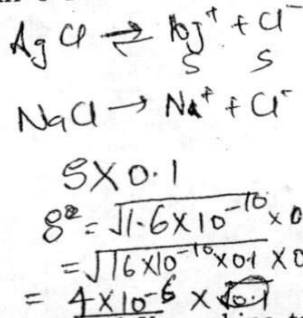 AgCl ⇌ Ag⁺ + Cl⁻
S S
NaCl → Na⁺ + Cl⁻
S×0.1
S² = √1.6×10⁻¹⁰ ×0
= √16×10⁻¹⁰×0.1 ×0
= 4×10⁻⁶ × √0.1